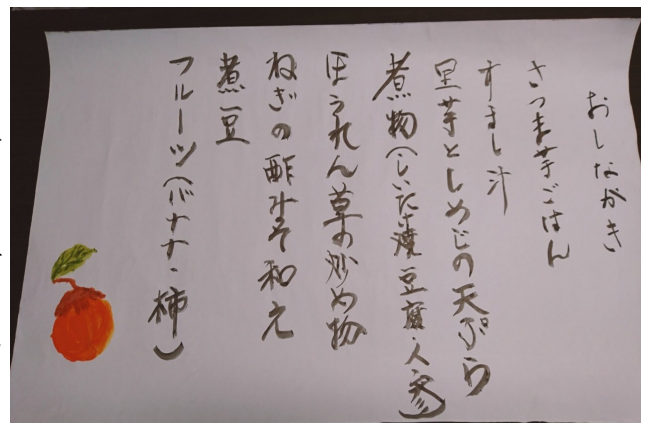 おしながき
さつま芋ごはん
すまし汁
里芋としめじの天ぷら
煮物(しいたけ・焼豆腐・人参)
ほうれん草の炒め物
ねぎの酢みそ和え
煮豆
フルーツ(バナナ・柿)